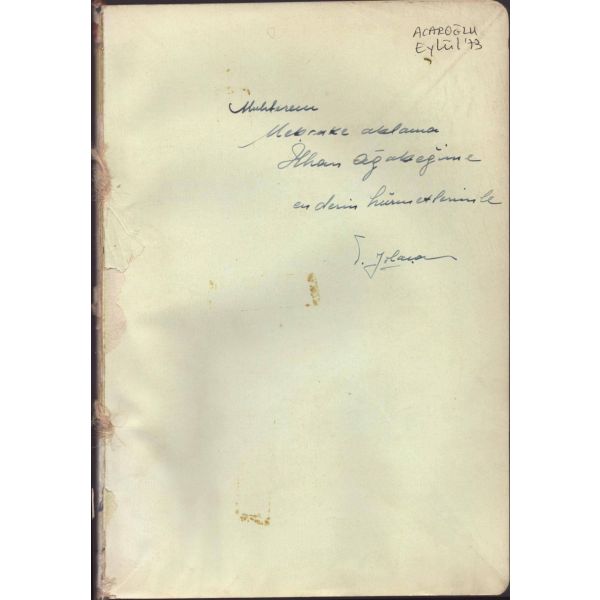 ACAROĞLU
Eylül '73
Muhterem
Mebruke ablama
İlhan Ağabeğime
en derin hürmetlerimle